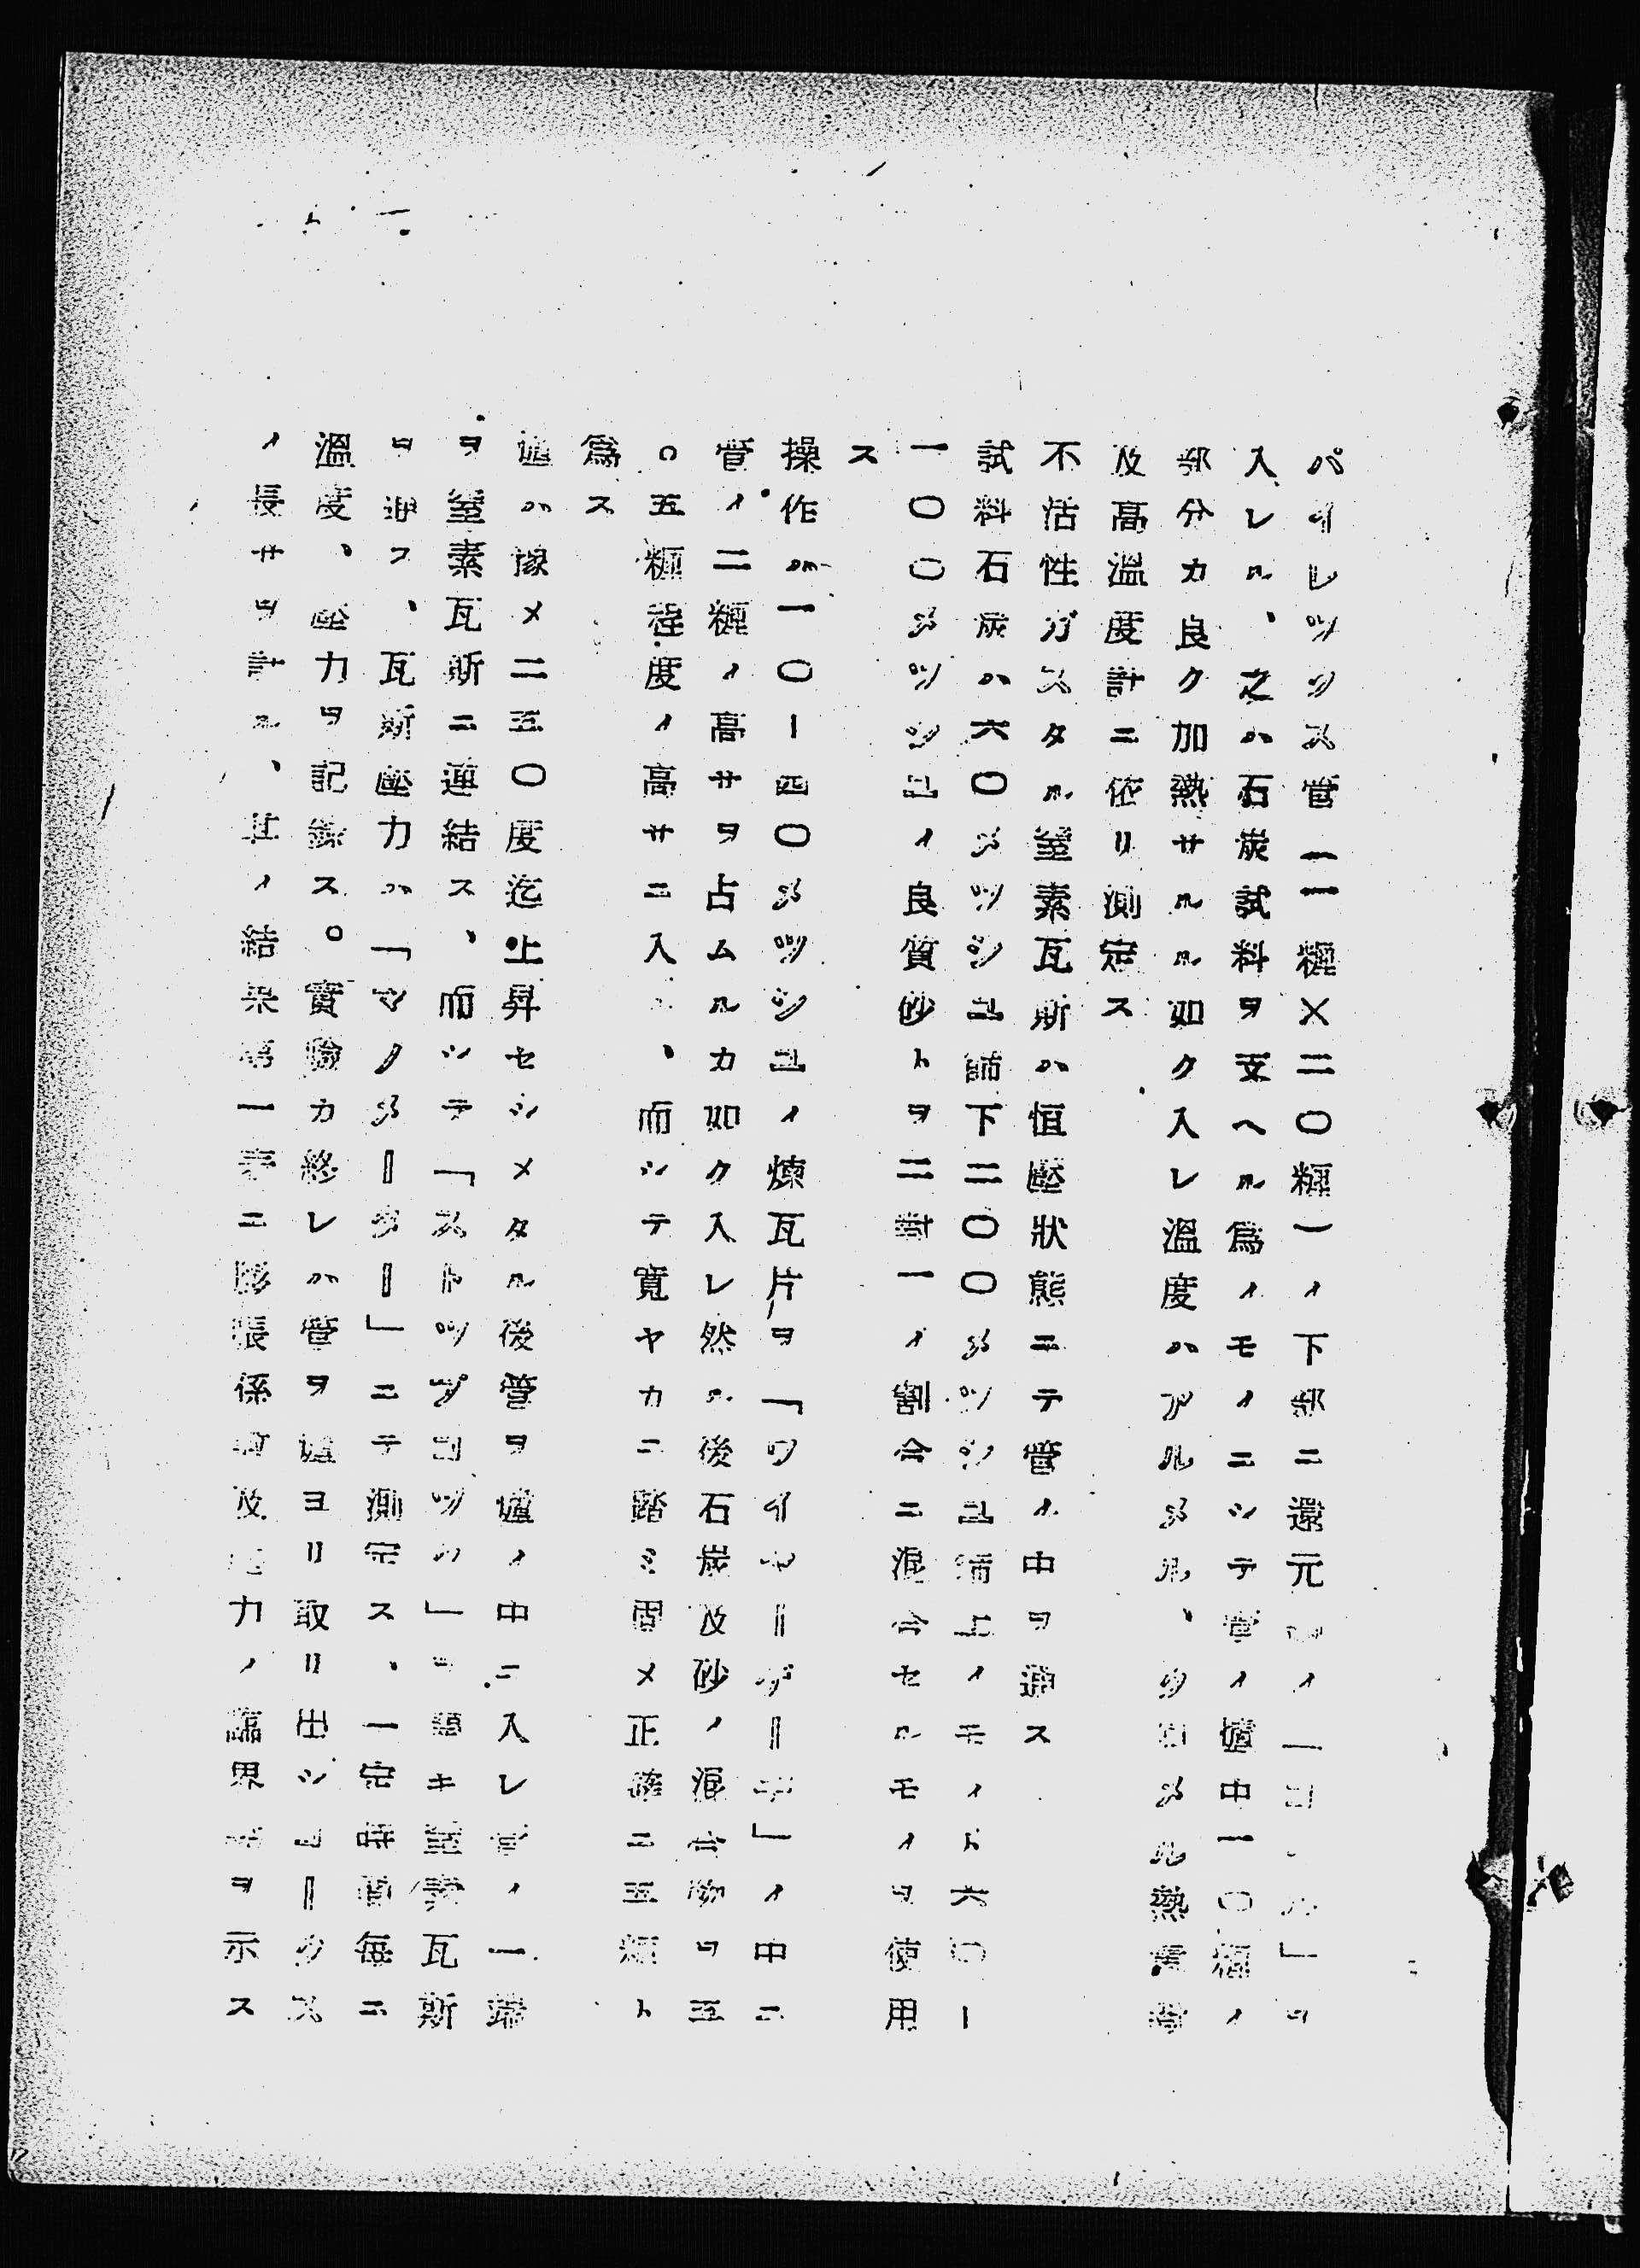 パイレツクス管(一糎×二〇糎)ノ下部ニ還元ノ「コイル」ヲ
入レル、之ハ石炭試料ヲ支ヘル為ノモノニシテ管ノ爐中一〇糎ノ
部分カ良ク加熱サルル如ク入レ温度ハアルメル、クロメル熱電
及高温度計ニ依リ測定ス
不活性ガスタル窒素瓦斯ハ恒壓狀態ニテ管ノ中ヲ通ス
試料石炭ハ六〇メツシユ篩下二〇〇メツシユ篩上ノモノト六〇ー
一〇〇メツシユノ良質砂トヲ二對一ノ割合ニ混合セルモノヲ使用
ス
操作ハ一〇ー四〇メツシユノ煉瓦片ヲ「ワイヤーゲーヂ」ノ中ニ
管ノ二糎ノ高サヲ占ムルカ如ク入レ然ル後石炭及砂ノ混合物ヲ五
〇五糎程度ノ高サニ入レ、而シテ寬ヤカニ踏ミ固メ正確ニ五糎ト
爲ス
爐ハ豫メ二五〇度迄上昇セシメタル後管ヲ爐ノ中ニ入レ管ノ一端
ヲ窒素瓦斯ニ連結ス、而シテ「ストツプコツク」ヲ開キ窒素瓦斯
ヲ通ス、瓦斯壓力ハ「マノメーター」ニテ測定ス、一定時間每ニ
溫度、壓力ヲ記錄ス。實驗カ終レハ管ヲ爐ヨリ取リ出シコークス
ノ長サヲ計ル、其ノ結果第一表ニ膨張係數及壓力ノ臨界 ヲ示ス